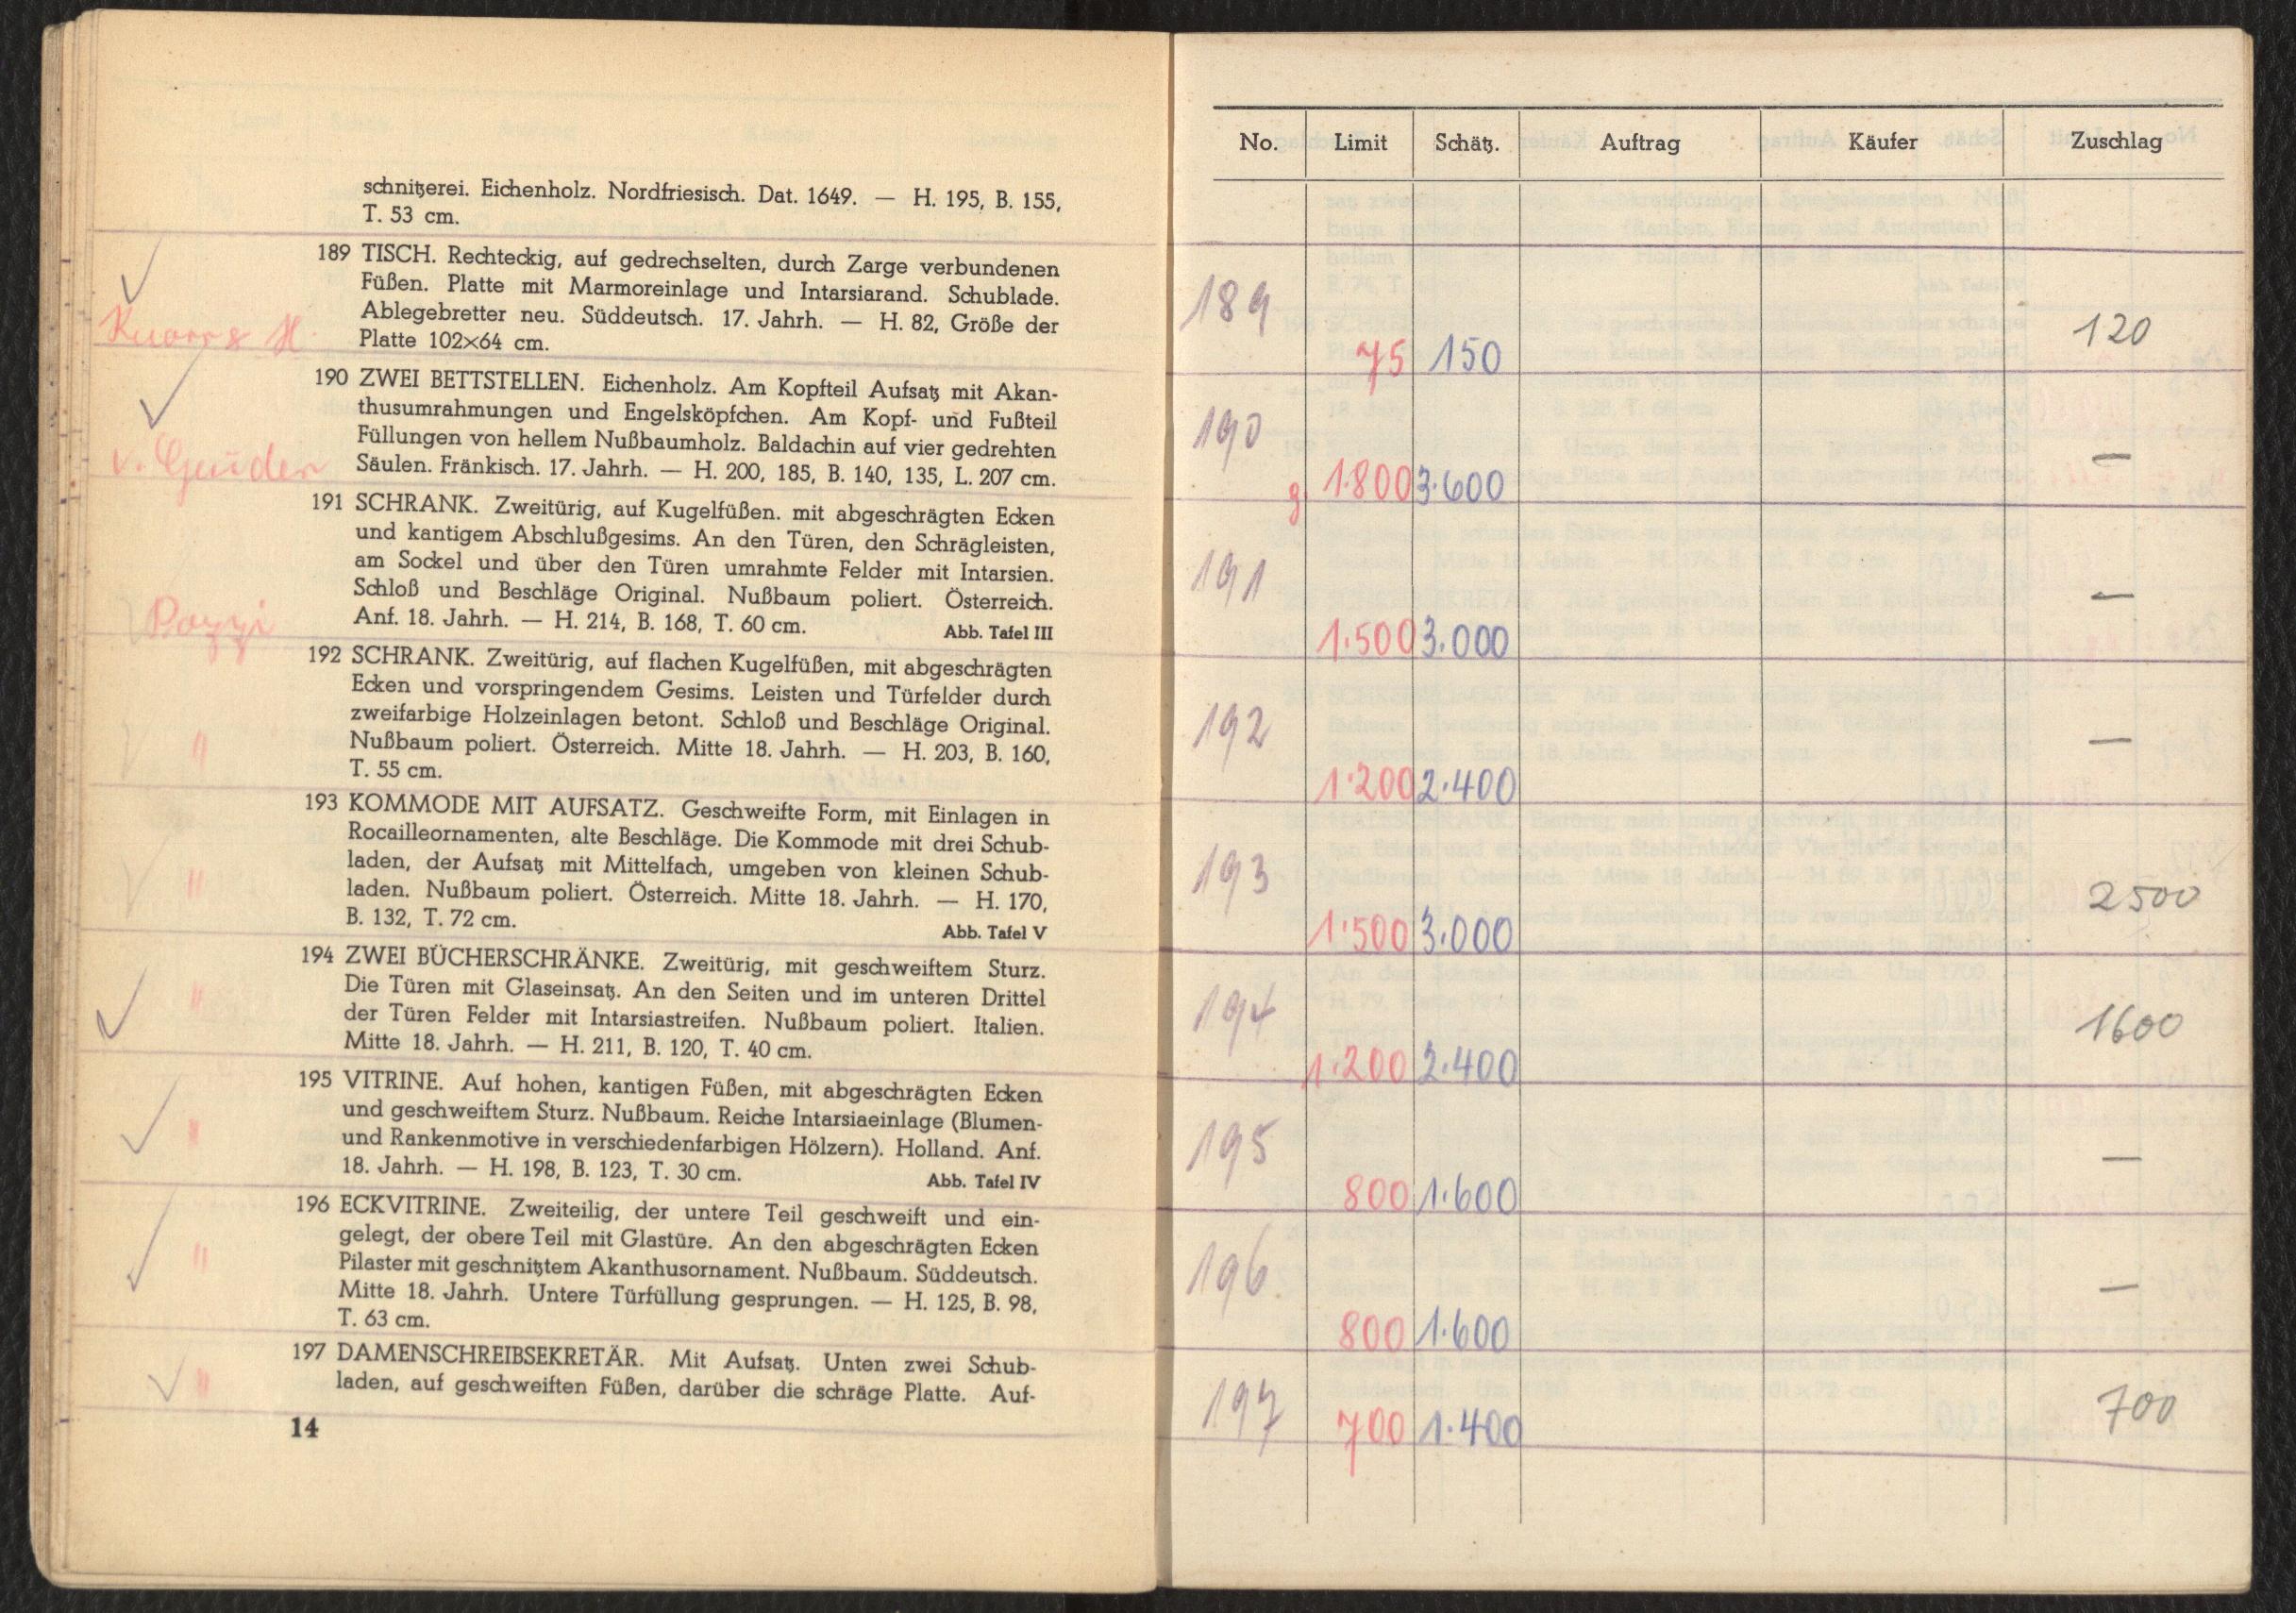 schnitzerei. Eichenholz. Nordfriesisch. Dat. 1649. — H. 195, B. 155,
T. 53 cm.
189 TISCH. Rechteckig, auf gedrechselten, durch Zarge verbundenen
Füßen. Platte mit Marmoreinlage und Intarsiarand. Schublade.
Ablegebretter neu. Süddeutsch. 17. Jahrh. — H. 82, Größe der
Platte 102×64 cm.
190 ZWEI BETTSTELLEN. Eichenholz. Am Kopfteil Aufsatz mit Akan-
thusumrahmungen und Engelsköpfchen. Am Kopf- und Fußteil
Füllungen von hellem Nußbaumholz. Baldachin auf vier gedrehten
Säulen. Fränkisch. 17. Jahrh. — H. 200, 185, B. 140, 135, L. 207 cm.
191 SCHRANK. Zweitürig, auf Kugelfüßen. mit abgeschrägten Ecken
und kantigem Abschlußgesims. An den Türen, den Schrägleisten,
am Sockel und über den Türen umrahmte Felder mit Intarsien.
Schloß und Beschläge Original. Nußbaum poliert. Österreich.
Pozzi Anf. 18. Jahrh. — H. 214, B. 168, T. 60 cm. Abb. Tafel III
192 SCHRANK. Zweitürig, auf flachen Kugelfüßen, mit abgeschrägten
Ecken und vorspringendem Gesims. Leisten und Türfelder durch
zweifarbige Holzeinlagen betont. Schloß und Beschläge Original.
" Nußbaum poliert. Österreich. Mitte 18. Jahrh. — H. 203, B. 160,
T. 55 cm.
193 KOMMODE MIT AUFSATZ. Geschweifte Form, mit Einlagen in
Rocailleornamenten, alte Beschläge. Die Kommode mit drei Schub-
laden, der Aufsatz mit Mittelfach, umgeben von kleinen Schub-
" laden. Nußbaum poliert. Österreich. Mitte 18. Jahrh. — H. 170,
B. 132, T. 72 cm. Abb. Tafel V
194 ZWEI BÜCHERSCHRÄNKE. Zweitürig, mit geschweiftem Sturz.
" Die Türen mit Glaseinsatz. An den Seiten und im unteren Drittel
der Türen Felder mit Intarsiastreifen. Nußbaum poliert. Italien.
Mitte 18. Jahrh. — H. 211, B. 120, T. 40 cm.
195 VITRINE. Auf hohen, kantigen Füßen, mit abgeschrägten Ecken
und geschweiftem Sturz. Nußbaum. Reiche Intarsiaeinlage (Blumen-
" und Rankenmotive in verschiedenfarbigen Hölzern). Holland. Anf.
18. Jahrh. — H. 198, B. 123, T. 30 cm. Abb. Tafel IV
196 ECKVITRINE. Zweiteilig, der untere Teil geschweift und ein-
gelegt, der obere Teil mit Glastüre. An den abgeschrägten Ecken
" Pilaster mit geschnitztem Akanthusornament. Nußbaum. Süddeutsch.
Mitte 18. Jahrh. Untere Türfüllung gesprungen. — H. 125, B. 98,
T. 63 cm.
197 DAMENSCHREIBSEKRETÄR. Mit Aufsatz. Unten zwei Schub-
" laden, auf geschweiften Füßen, darüber die schräge Platte. Auf-
14
No. Limit Schätz. Auftrag Käufer Zuschlag
189 75 150 120
190 g 1.800 3.600 —
191 1.500 3.000 —
192 1.200 2.400 —
193 1.500 3.000 2500
194 1.200 2.400 1600
195 800 1.600 —
196 800 1.600 —
197 700 1.400 700